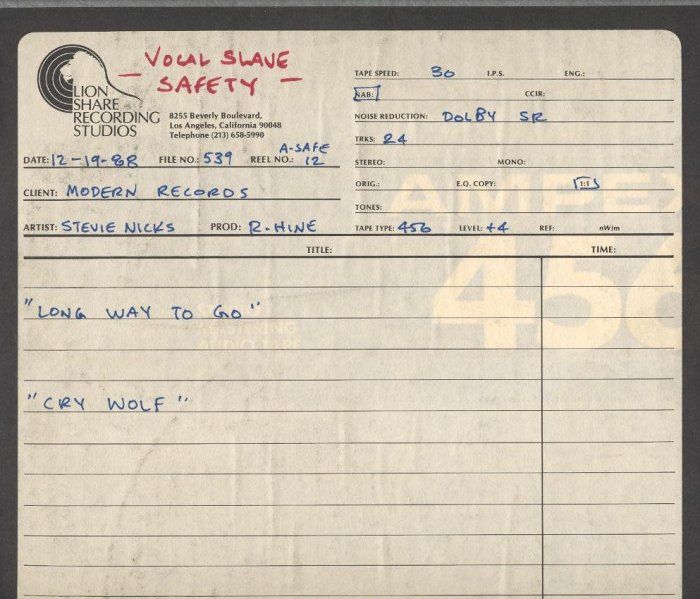 VOCAL SLAVE
— SAFETY —
LION
SHARE
RECORDING
STUDIOS
8255 Beverly Boulevard,
Los Angeles, California 90048
Telephone (213) 658-5990
DATE: 12-19-88 FILE NO.: 539 REEL NO.: A-SAFE 12
CLIENT: MODERN RECORDS
ARTIST: STEVIE NICKS PROD: R. HINE
TAPE SPEED: 30 I.P.S. ENG.:
NAB: CCIR:
NOISE REDUCTION: DOLBY SR
TRKS: 24
STEREO: MONO:
ORIG.: E.Q. COPY: 1:1
TONES:
TAPE TYPE: 456 LEVEL: +4 REF: nW/m
TITLE: TIME:
"LONG WAY TO GO"
"CRY WOLF"
AMPEX
456